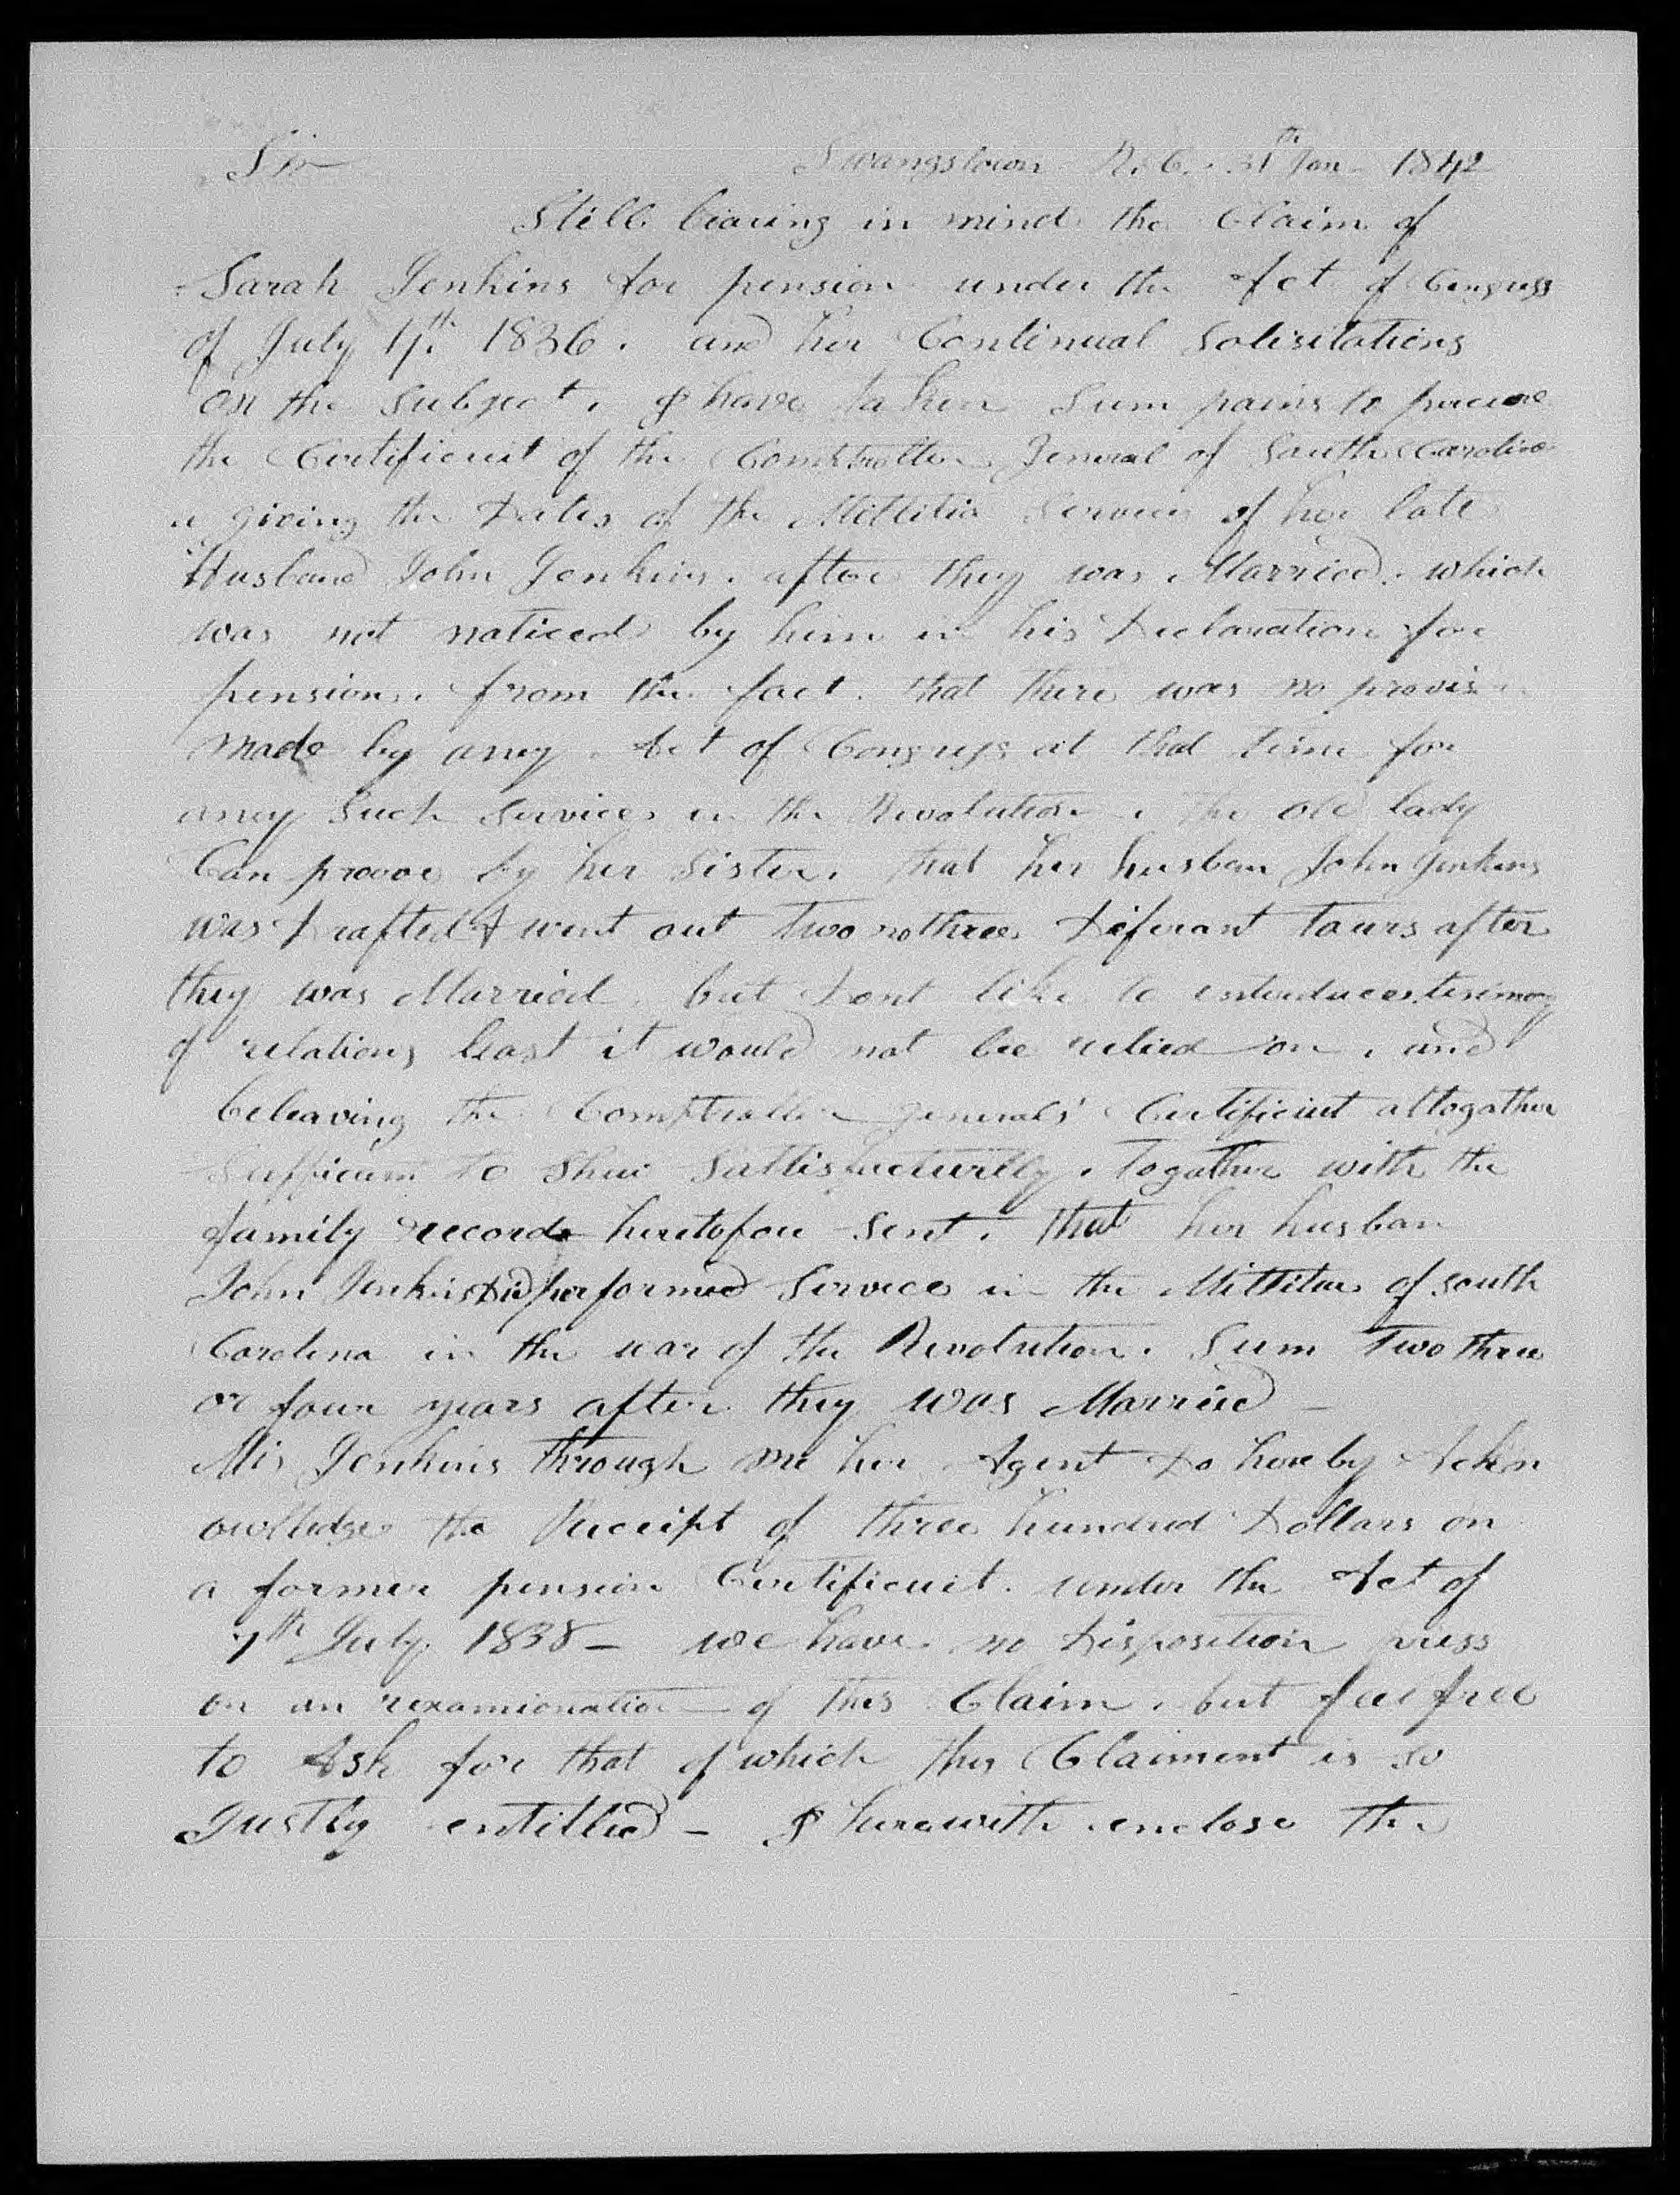 Sir Swangstown N. C. 31th Jan 1842
Still bearing in mind the Claim of
Sarah Jenkins for pension under the Act of Congress
of July 4th 1836. and her Continual Solisitations
on the Subject. I have taken Sum pains to procure
the Certificeut of the Comptroller General of South Carolina
giving the Dates of the Militia Services of her late
Husband John Jenkins. after they was Married. which
was not noticed by him in his Declaration for
pension. from the fact. that there was no provis
made by any Act of Congress at that time for
any Such Services in the Revolution. the old lady
Can proove by her Sister. that her husban John Jenkins
was Drafted & went out two or three Diferant tours after
they was Married. but Dont like to entroduce testimony
of relations least it would not bee relied on. and
beleaving the Comptroller generals' Certificeut altogather
Sufficient to Shew Sattisfacturlly. togather with the
family record heretofore Sent. that her husban
John Jenkins Did performed Service in the Millitia of South
Carolina in the war of the Revolution. Sum two three
or four years after they was Married –
Mis Jenkins through me her Agent Do hereby Ackn
owlledge the Receipt of three hundred Dollars on
a former pension Certificeut. under the Act of
7th July 1838 – we have no Disposition press
on an rexamionation of this Claim. but feel free
to Ask for that of which this Claiment is so
Justly entitled – I herewith enclose the